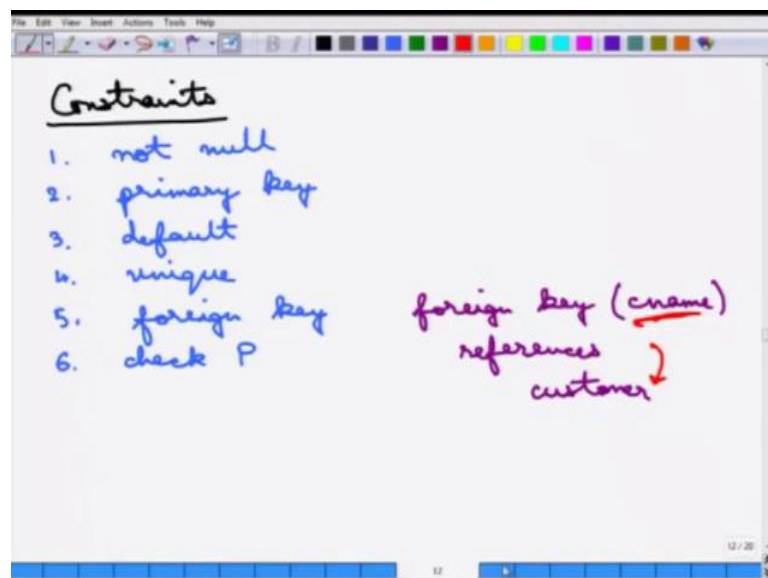 File Edit View Insert Actions Tools Help
Constraints
1. not null
2. primary key
3. default
4. unique
5. foreign key
6. check P
foreign key (cname)
references
customer
12 / 20
12